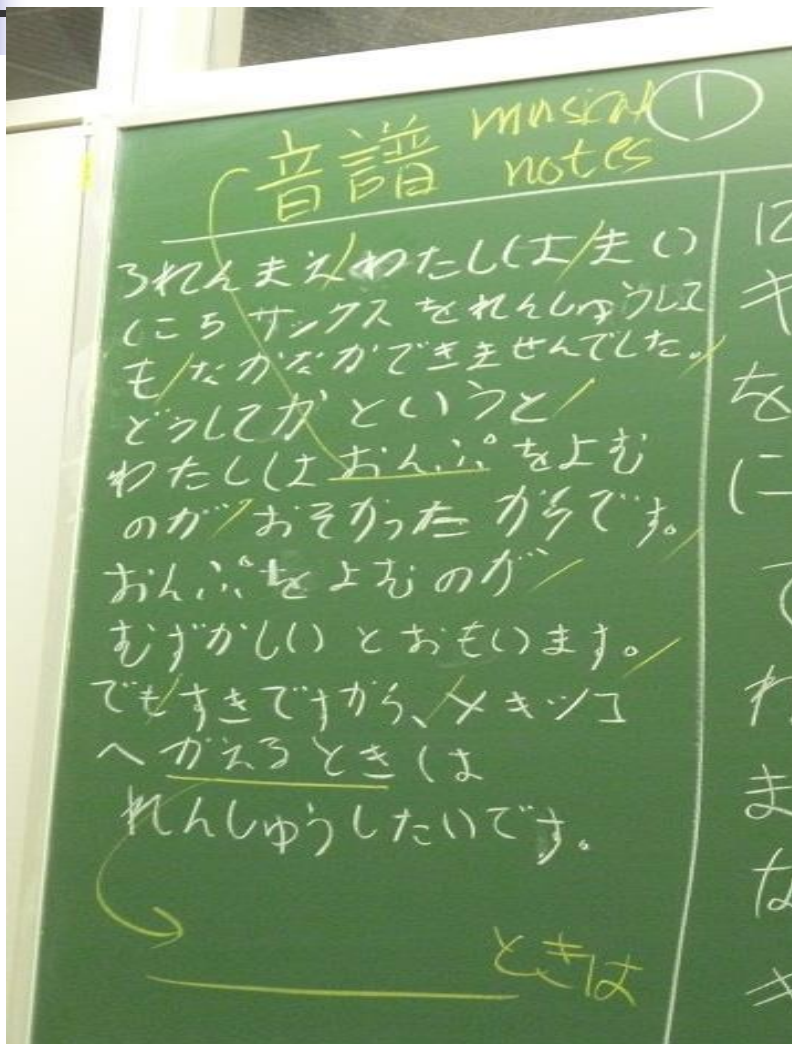 音譜 musical ①
notes
ろねんまえ/わたしは/まい
にちサックスをれんしゅうして
も/なかなかできませんでした。/
どうしてかというと/
わたしはおんぷをよむ
のが/おそかったからです。/
おんぷをよむのが/
むずかしいとおもいます。/
でも/すきですから、/メキシコ
へかえるときは
れんしゅうしたいです。
ときは
に
キ
を
に
て
わ
ま
な
キ